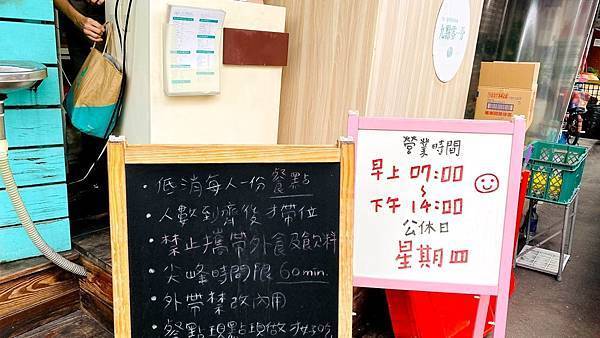 ・低消每人一份餐點
・人數到齊後才帶位
・禁止攜帶外食及飲料
・尖峰時間限60min.
・外帶禁改內用
・餐點現點現做才好吃
營業時間
早上 07:00
~
下午 14:00
公休日
星期四